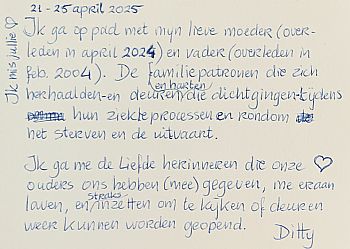 21 - 25 april 2025
Ik ga op pad met mijn lieve moeder (over-
leden in april 2024) en vader (overleden in
feb. 2004). De familiepatronen die zich
en harten
herhaalden en deuren die dichtgingen tijdens
hun ziekteprocessen en rondom
het sterven en de uitvaart.
Ik ga me de Liefde herinneren die onze ♡
ouders ons hebben (mee) gegeven, me eraan
straks
laven, en inzetten om te kijken of deuren
weer kunnen worden geopend.
Ditty
Ik mis jullie ♡